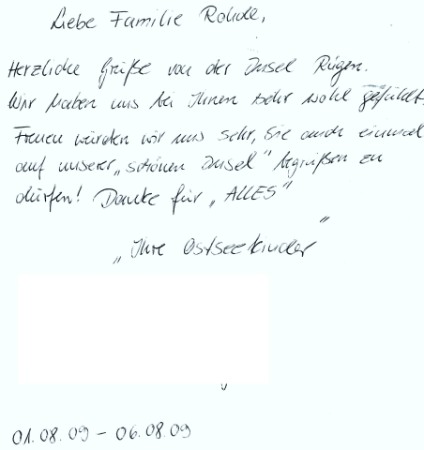 Liebe Familie Rohde,
Herzliche Grüße von der Insel Rügen.
Wir haben uns bei Ihnen sehr wohl gefühlt.
Freuen würden wir uns sehr, Sie auch einmal
auf unserer „schönen Insel“ begrüßen zu
dürfen! Danke für „ALLES“
„Ihre Ostseekinder“
01.08.09 – 06.08.09